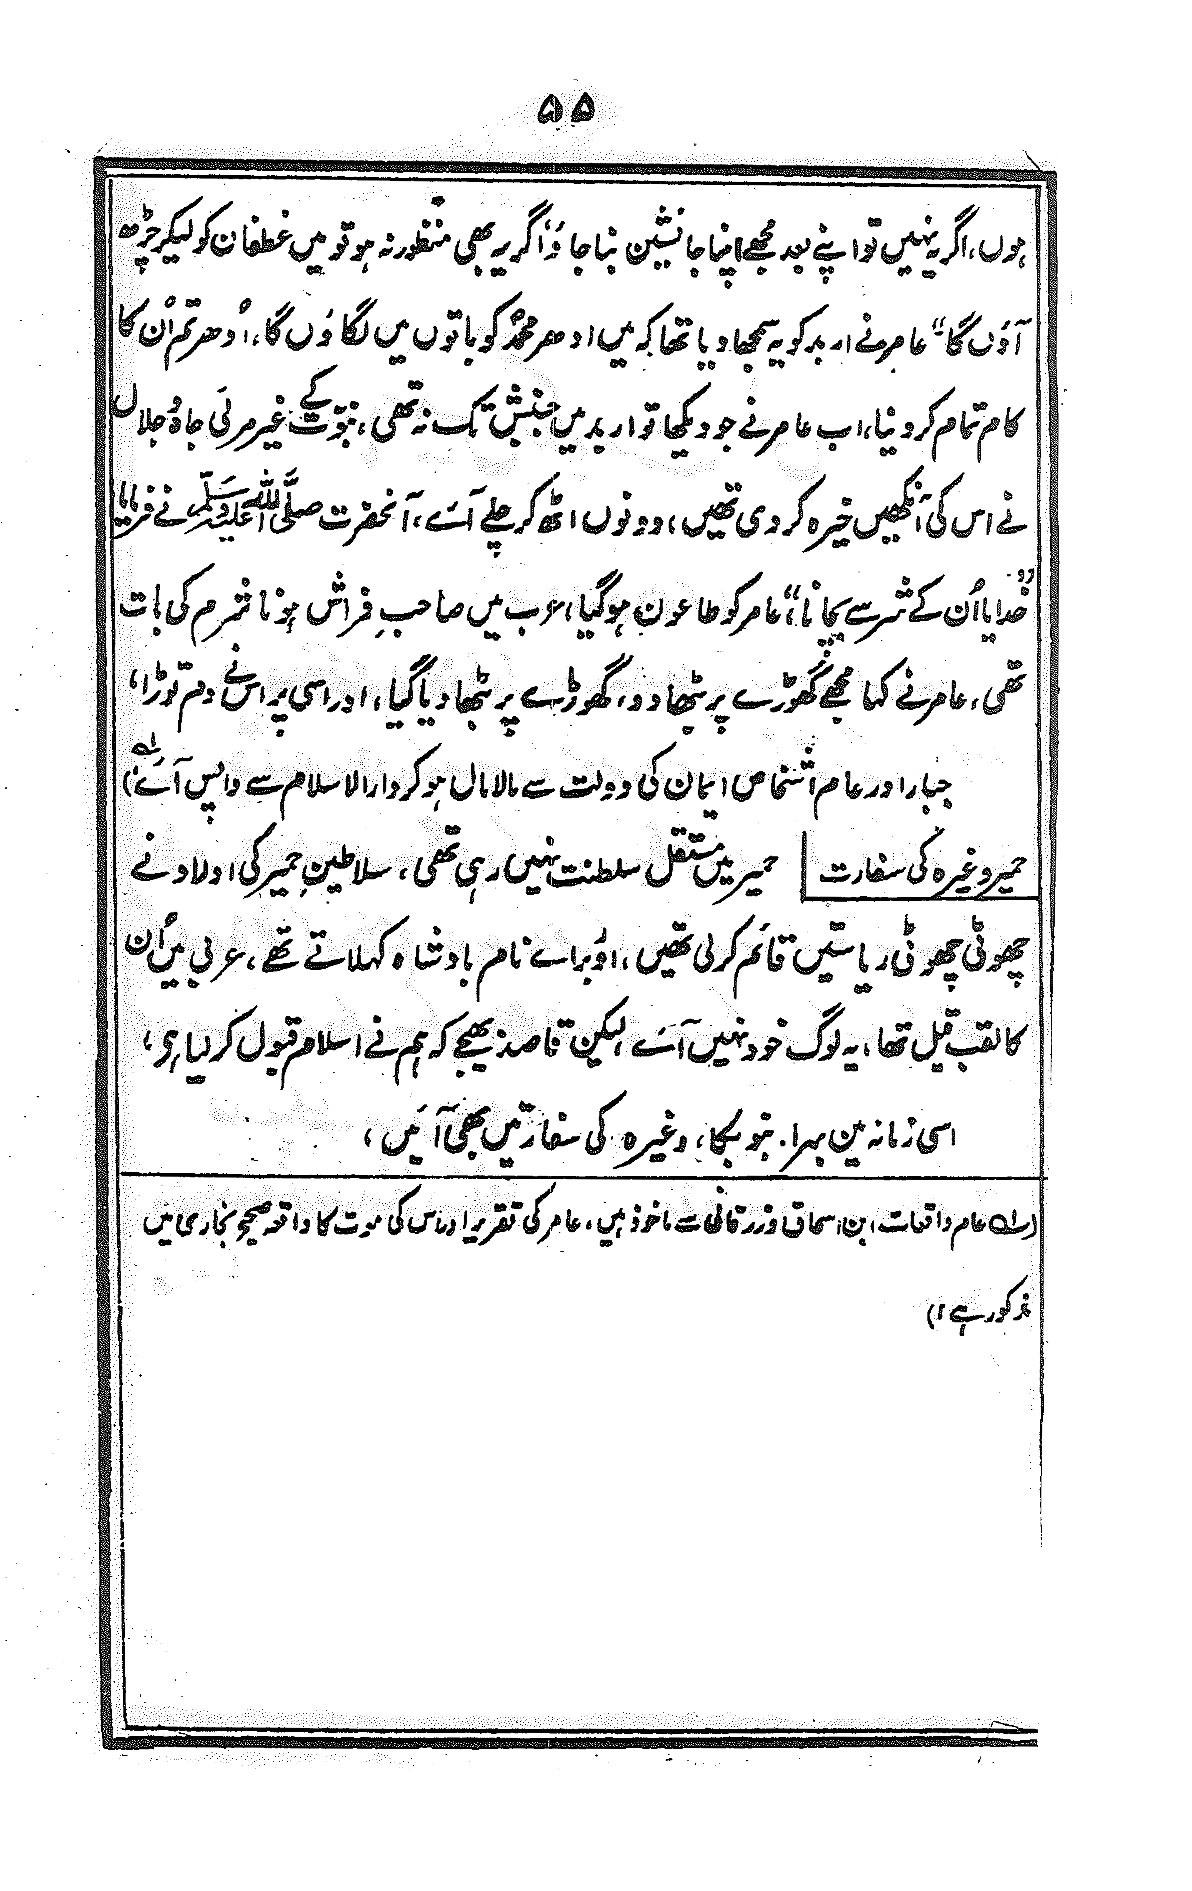 ۵۵
ہوں، اگر یہ نہیں تو اپنے بعد مجھے اپنا جانشین بنا جاؤ، اگر یہ بھی منظور نہ ہو تو میں غطفان کو لیکر چڑھ
آؤں گا" عامر نے اربد کو یہ سمجھا دیا تھا کہ میں ادھر محمدؐ کو باتوں میں لگاؤں گا، اُدھر تم اُن کا
کام تمام کر دینا، اب عامر نے جو دیکھا تو اربد میں جنبش تک نہ تھی، نبوّت کے غیر مرئی جاہ و جلال
نے اس کی آنکھیں خیرہ کر دی تھیں، دونوں اٹھ کر چلے آئے، آنحضرت صلّی اللہ علیہ وسلّم نے فرمایا
"خدایا اُن کے شر سے بچانا"، عامر کو طاعون ہو گیا، عرب میں صاحبِ فراش ہونا شرم کی بات
تھی، عامر نے کہا مجھے گھوڑے پر بٹھا دو، گھوڑے پر بٹھا دیا گیا، اور اسی پر اس نے دم توڑا،
جبار اور عام اشخاص ایمان کی دولت سے مالا مال ہو کر دار الاسلام سے واپس آئے (۱؎)
حمیر وغیرہ کی سفارت | حمیر میں مستقل سلطنت نہیں رہی تھی، سلاطینِ حمیر کی اولاد نے
چھوٹی چھوٹی ریاستیں قائم کر لی تھیں، اور برائے نام بادشاہ کہلاتے تھے، عربی میں اُن
کا لقب قیل تھا، یہ لوگ خود نہیں آئے لیکن قاصد بھیجے کہ ہم نے اسلام قبول کر لیا ہی،
اسی زمانہ مین بہرا، بنو بکا، وغیرہ کی سفارتیں بھی آئیں،
(۱؎ عام واقعات ابن اسحاق و زرقانی سے ماخوذ ہیں، عامر کی تقریر اور اس کی موت کا واقعہ صحیح بخاری میں
مذکور ہے ۱)